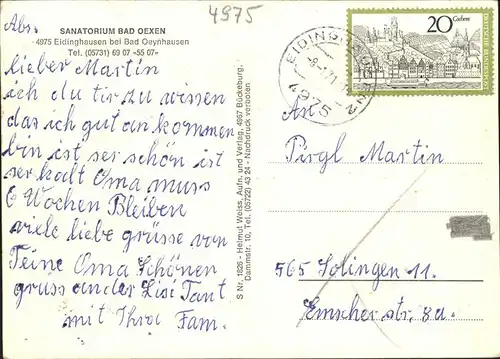 4975
Abs.
SANATORIUM BAD OEXEN
4975 Eidinghausen bei Bad Oeynhausen
Tel. (05731) 69 07 - 55 07
lieber Martin
ich du tir zu wissen
das ich gut an kommen
bin ist ser schön ist
ser kalt Oma muss
6 Wochen Bleiben
viele liebe grüsse von
Teine Oma Schönen
gruss an der Lisi Tant
mit Ihra Fam.
S Nr. 1826 - Helmut Weiss, Aufn. und Verlag, 4967 Bückeburg,
Dammstr. 10, Tel. (05722) 43 24 - Nachdruck verboten
EIDINGHAUSEN 2
4975
20 Cochem
DEUTSCHE BUNDESPOST
An
Pirgl Martin
565 Solingen 11.
Emscher str. 8a.